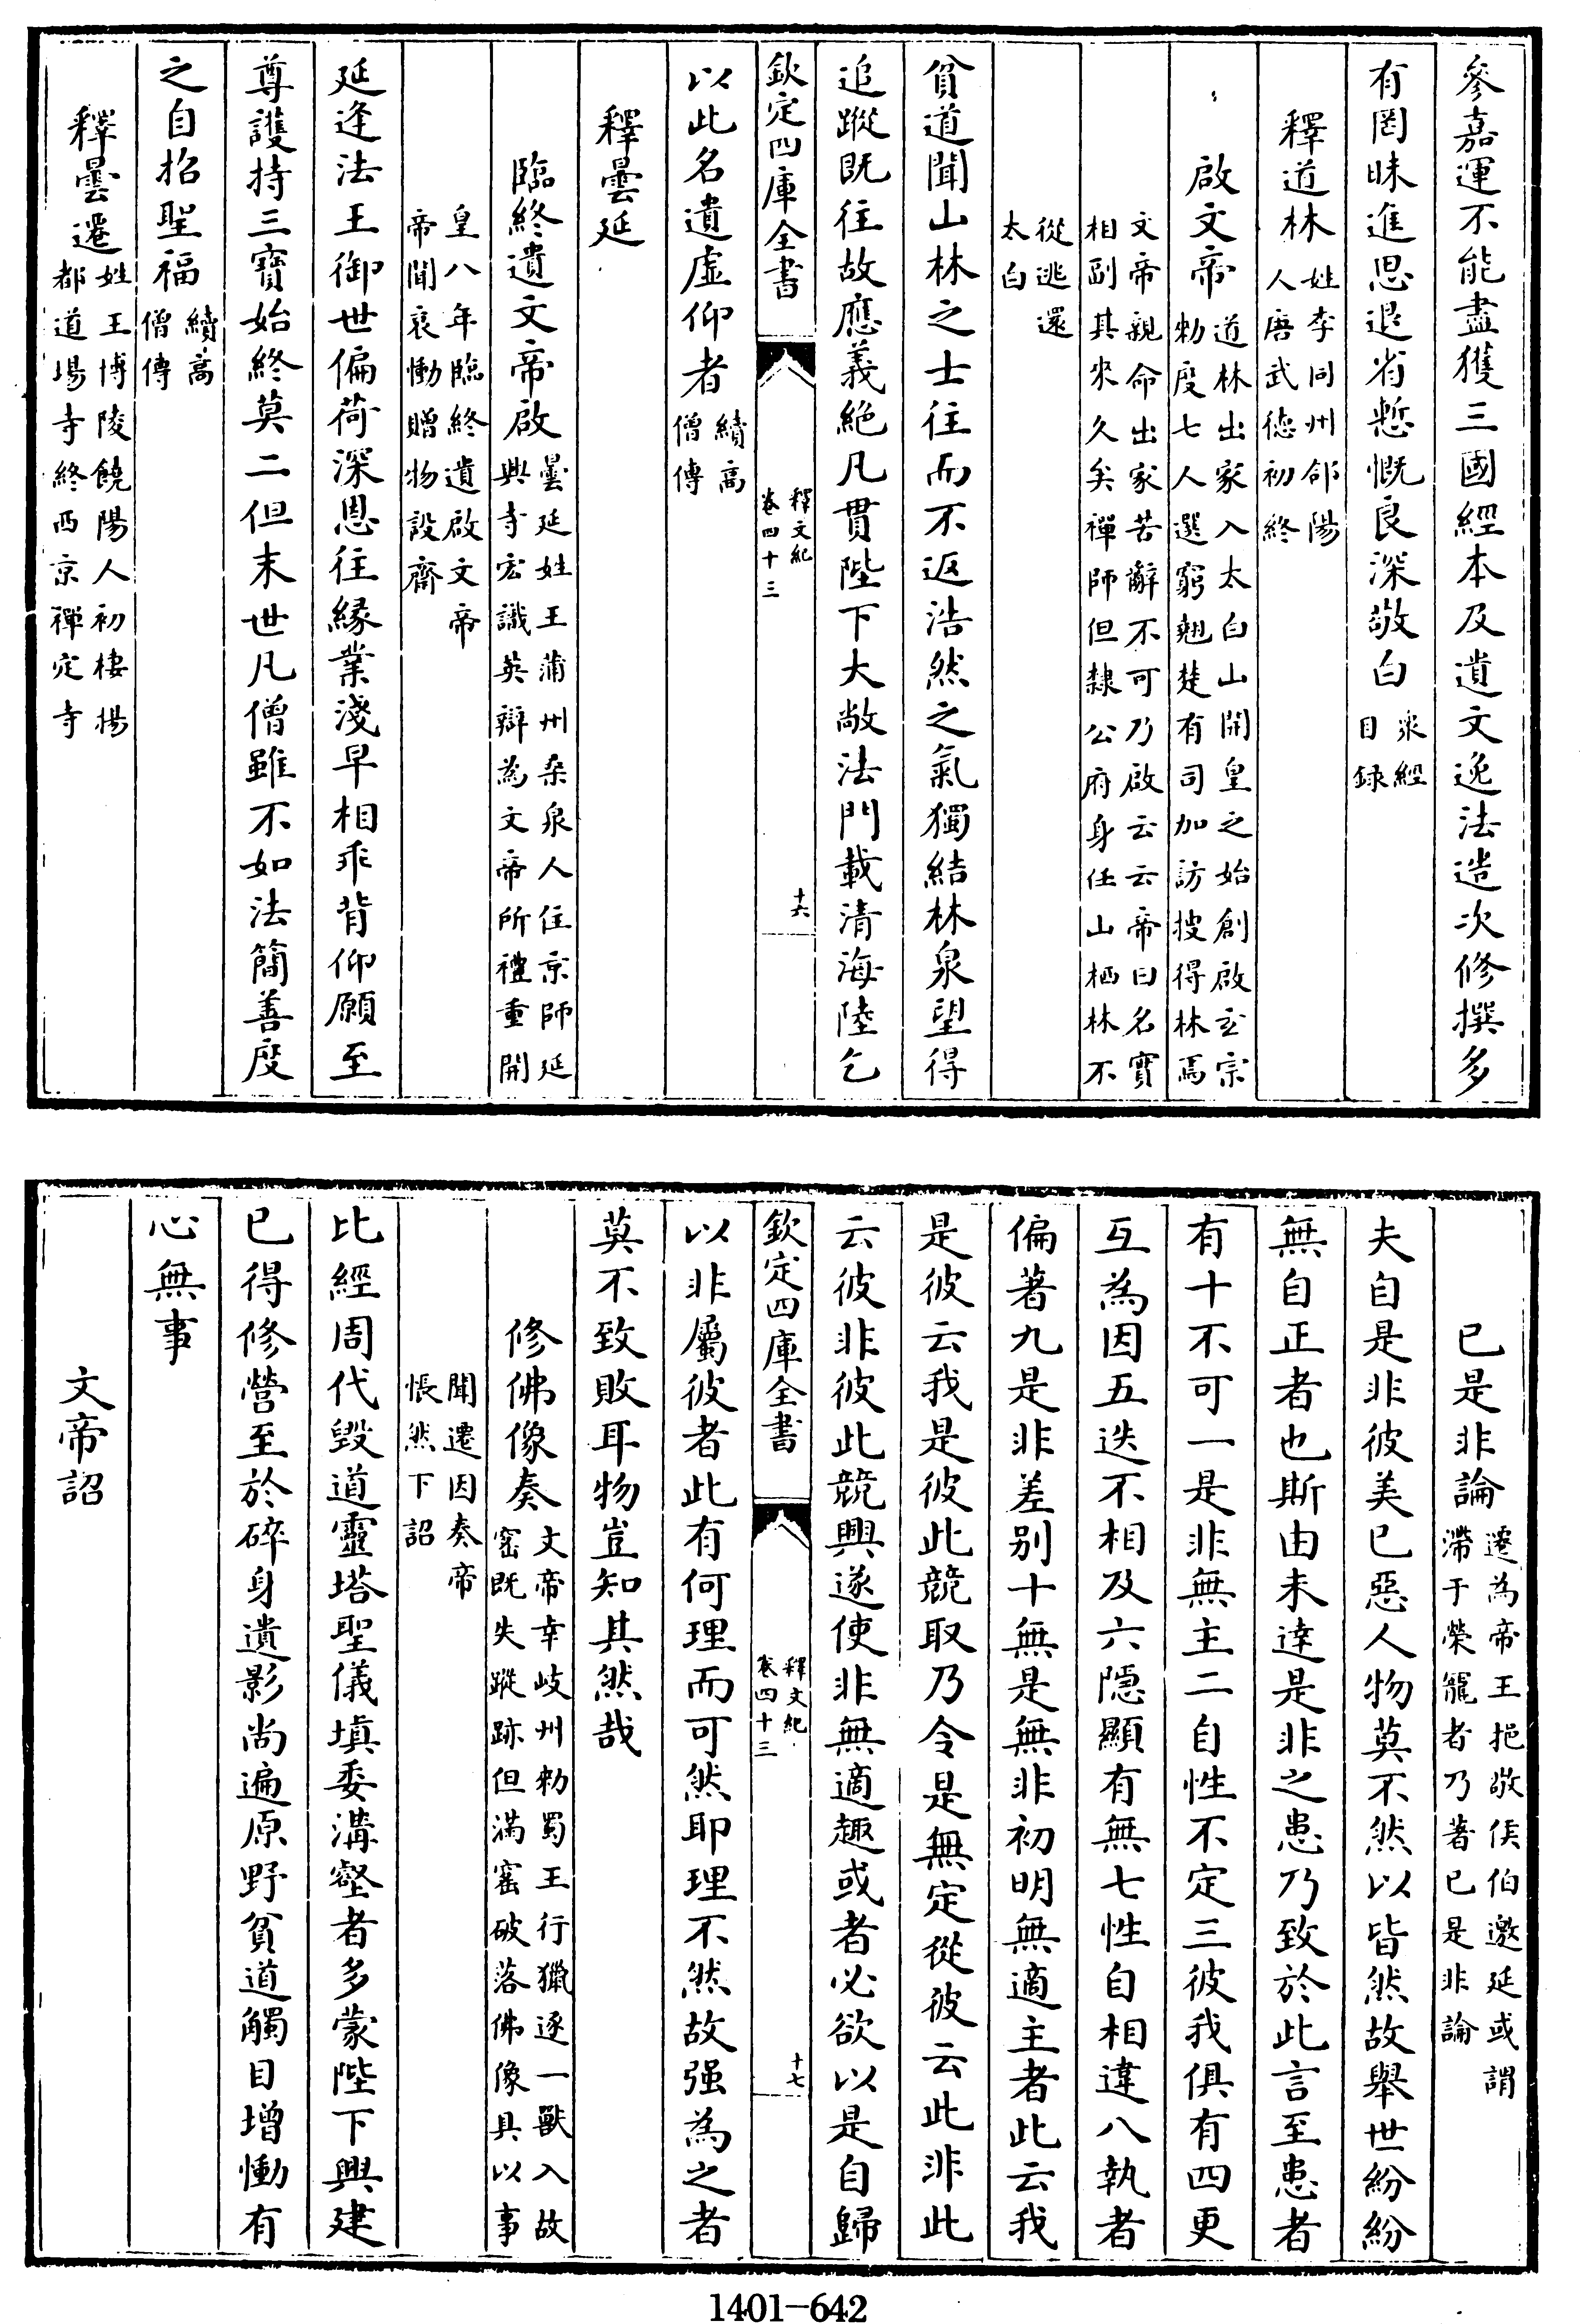 參嘉運不能盡獲三國經本及遺文逸法造次修撰多
有罔昧進思退省慙慨良深敬白 衆經目録
釋道林 姓李同州郃陽人唐武德初終
啟文帝 道林出家入太白山開皇之始創啟玄宗勑度七人選窮翹楚有司加訪搜得林焉
文帝親命出家苦辭不可乃啟云云帝曰名實相副其來久矣禪師但隸公府身任山栖林不
從逃還太白
貧道聞山林之士往而不返浩然之氣獨結林泉望得
追蹤既往故應義絶凡貫陛下大敞法門載清海陸乞
欽定四庫全書 釋文紀 卷四十三 十六
以此名遺虛仰者 續高僧傳
釋曇延
臨終遺文帝啟 曇延姓王蒲州桑泉人住京師延興寺宏識英辯為文帝所禮重開
皇八年臨終遺啟文帝帝聞哀慟贈物設齋
延逢法王御世偏荷深恩往縁業淺早相乖背仰願至
尊護持三寶始終莫二但末世凡僧雖不如法簡善度
之自招聖福 續高僧傳
釋曇遷 姓王博陵饒陽人初棲揚都道場寺終西京禪定寺
已是非論 遷為帝王挹敬侯伯邀延或謂滯于榮寵者乃著已是非論
夫自是非彼美已惡人物莫不然以皆然故舉世紛紛
無自正者也斯由未達是非之患乃致於此言至患者
有十不可一是非無主二自性不定三彼我俱有四更
互為因五迭不相及六隱顯有無七性自相違八執者
偏著九是非差别十無是無非初明無適主者此云我
是彼云我是彼此競取乃令是無定從彼云此非此
云彼非彼此競興遂使非無適趣或者必欲以是自歸
欽定四庫全書 釋文紀 卷四十三 十七
以非屬彼者此有何理而可然耶理不然故强為之者
莫不致敗耳物豈知其然哉
修佛像奏 文帝幸岐州勑蜀王行獵逐一獸入故窰既失蹤跡但滿窰破落佛像具以事
聞遷因奏帝悵然下詔
比經周代毁道靈塔聖儀填委溝壑者多蒙陛下興建
已得修營至於碎身遺影尚遍原野貧道觸目增慟有
心無事
文帝詔
1401-642